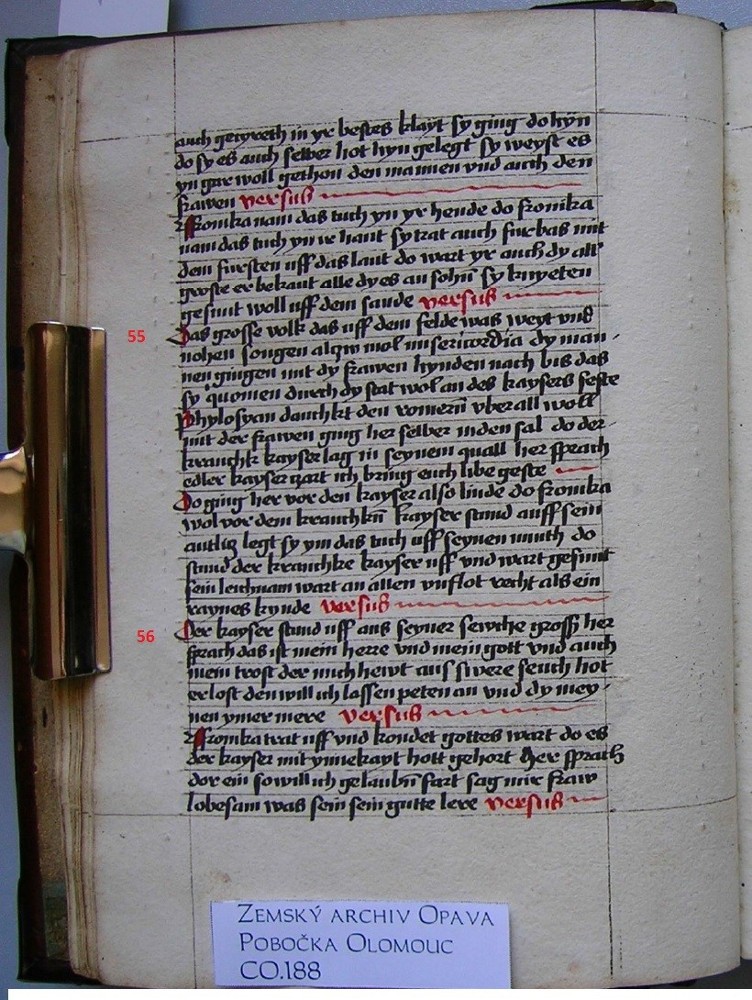 auch gezyreth in yr bestes klayt sy ging do hyn
do sy es auch selber hot hyn gelegt sy weyst es
yn gar woll gethon den mannen vnd auch den
frawen versus
Fronika nam das tuch yn yr hende do fronika
nam das tuch yn ir hant sy trat auch furbas mit
dem fursten uff das lant do wart yr auch dy all
groste er bekant alle dy es an sohn sy knyeten
gesunt woll uff dem sande versus
55
Das grosse volk das uff dem felde was weyt vnd
nohen songen alzw mol misericordia dy man
nen gingen mit dy frawen hynden nach bis das
sy quomen durch dy stat wol an des kaysers feste
Phylosyan danckt den romern vber all woll
mit der frawen ging her selber in den sal do der
kranchk kayser lag in seynem quall her sprach
edler kayser zart ich bring euch libe geste
Do ging her vor den kayser also linde do fronika
wol vor dem kranchkn kayser stund auff sein
antliz legt sy ym das tuch uff seynen muth do
stund der kranchke kayser uff vnd wart gesunt
sein leichnam wart an allen vnflot recht als ein
raynes kynde versus
56
Der kayser stund uff aus seyner sewche gross her
sprach das ist mein herre vnd mein gott vnd auch
mein trost der mich hewt aus swere seuch hot
erlost den will ich lassen peten an vnd dy mey
nen ymer mere versus
Fronika trat uff vnd kondet gottes wart do es
der kayser mit ynnekayt hott gehort Her sprach
dor ein so will ich gelaubn fart sag mir fraw
lobesam was sein sein gutte lere versus
Zemský archiv Opava
Pobočka Olomouc
CO.188